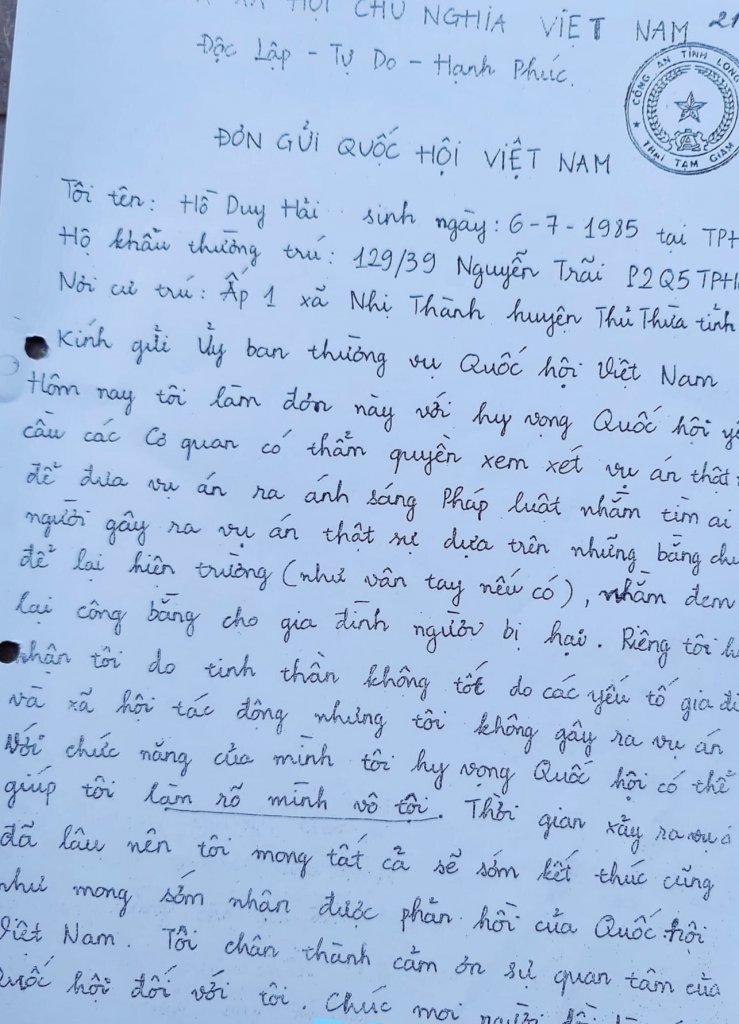 XÃ HỘI CHỦ NGHĨA VIỆT NAM 21
Độc Lập - Tự Do - Hạnh Phúc.
CÔNG AN TỈNH LONG
TRẠI TẠM GIAM
ĐƠN GỬI QUỐC HỘI VIỆT NAM
Tôi tên: Hồ Duy Hải sinh ngày: 6-7-1985 tại TPH
Hộ khẩu thường trú: 129/39 Nguyễn Trãi P2Q5 TPH
Nơi cư trú: Ấp 1 xã Nhị Thành huyện Thủ Thừa tỉnh
Kính gửi Ủy ban thường vụ Quốc hội Việt Nam
Hôm nay tôi làm đơn này với hy vọng Quốc hội yê
cầu các Cơ quan có thẩm quyền xem xét vụ án thật
để đưa vụ án ra ánh sáng Pháp luật nhằm tìm ai
người gây ra vụ án thật sự dựa trên những bằng chứ
để lại hiện trường (như vân tay nếu có), nhằm đem
lại công bằng cho gia đình người bị hại. Riêng tôi
nhận tôi do tinh thần không tốt do các yếu tố gia đì
và xã hội tác động nhưng tôi không gây ra vụ án
Với chức năng của mình tôi hy vọng Quốc hội có thể
giúp tôi làm rõ mình vô tội. Thời gian xảy ra vụ á
đã lâu nên tôi mong tất cả sẽ sớm kết thúc cũng
như mong sớm nhận được phản hồi của Quốc hội
Việt Nam. Tôi chân thành cảm ơn sự quan tâm của
Quốc hội đối với tôi. Chúc mọi người